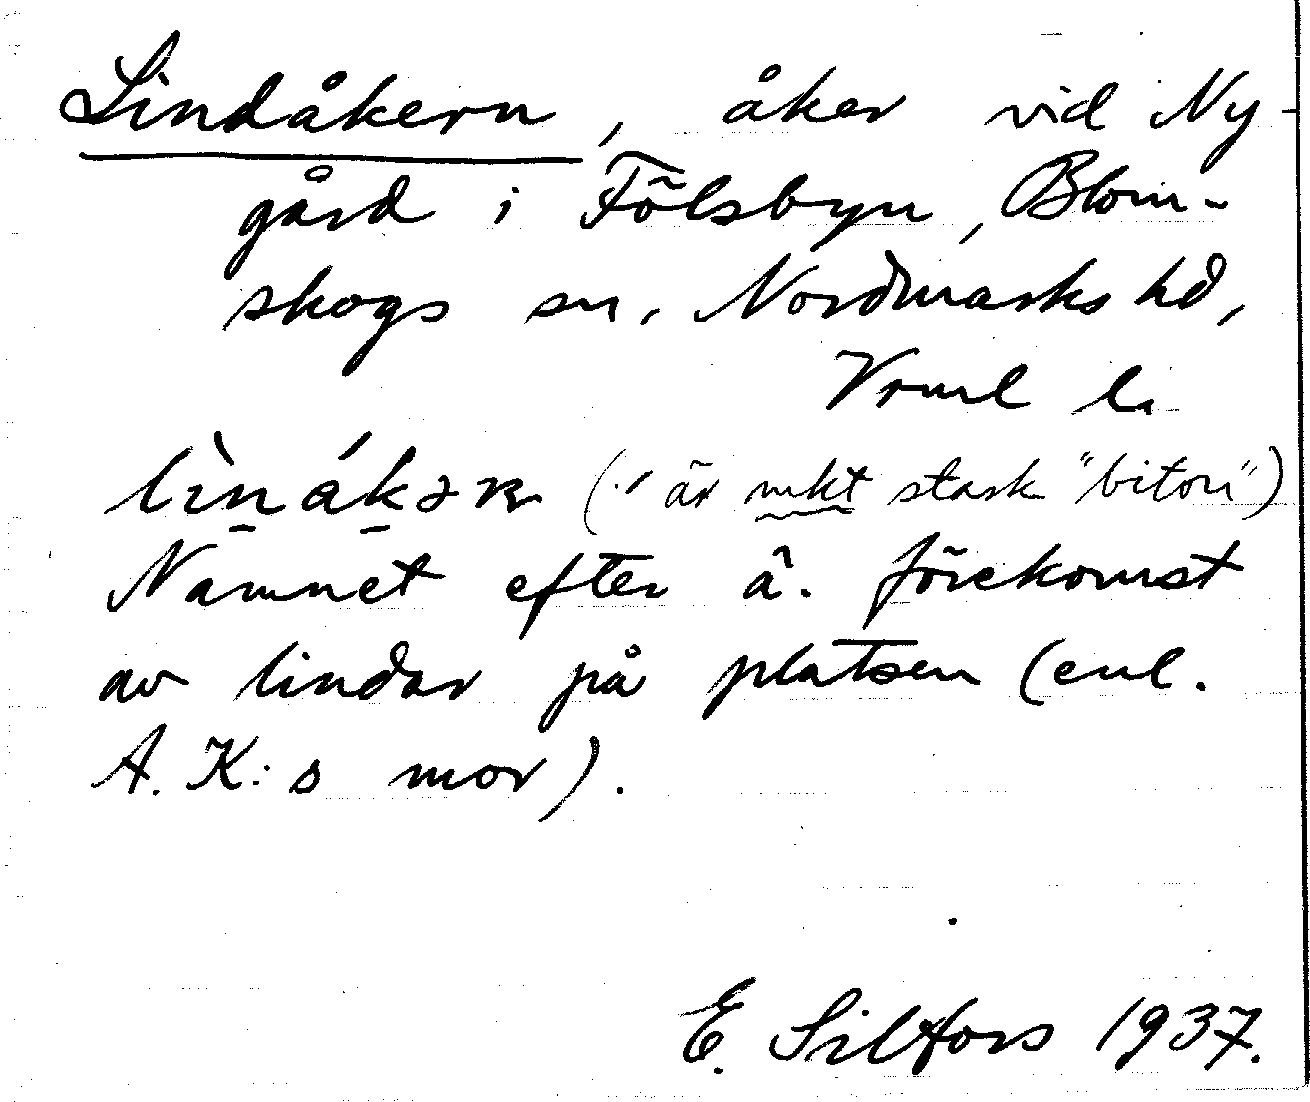 Lindåkern, åker vid Ny-
gård i Fölsbyn, Blom-
skogs sn, Nordmarks hd,
Vrml l.
(·´ är mkt stark "biton")
Namnet efter å. förekomst
av lindar på platsen (enl.
A. K:s mor).
E. Silfors 1937.